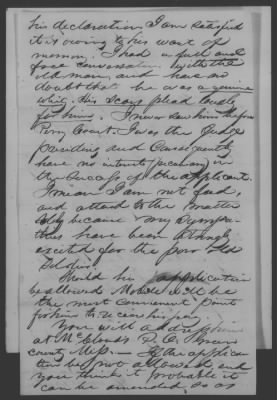 his declaration I am satisfied
it is owing to his want of
memory. I had a full and
free conversation with the
old man, and have no
doubt that he was a genuine
whig. His scars plead loudly
for him. I never saw him before
Perry Court. I was the Judge
presiding and Consequently
have no interest pecuniary in
the success of the applicant.
I mean I am not paid,
and attend to the matter
solely because my sympa-
thies have been strongly
excited for the poor old
Soldier.
Should his application
be allowed Mobile will be
the most convenient point
for him to receive his pay.
You will address him
at McLeods P. O. Greene
county Mip. If the applica-
tion be not allowed and
you think it probable it
can be amended, so as